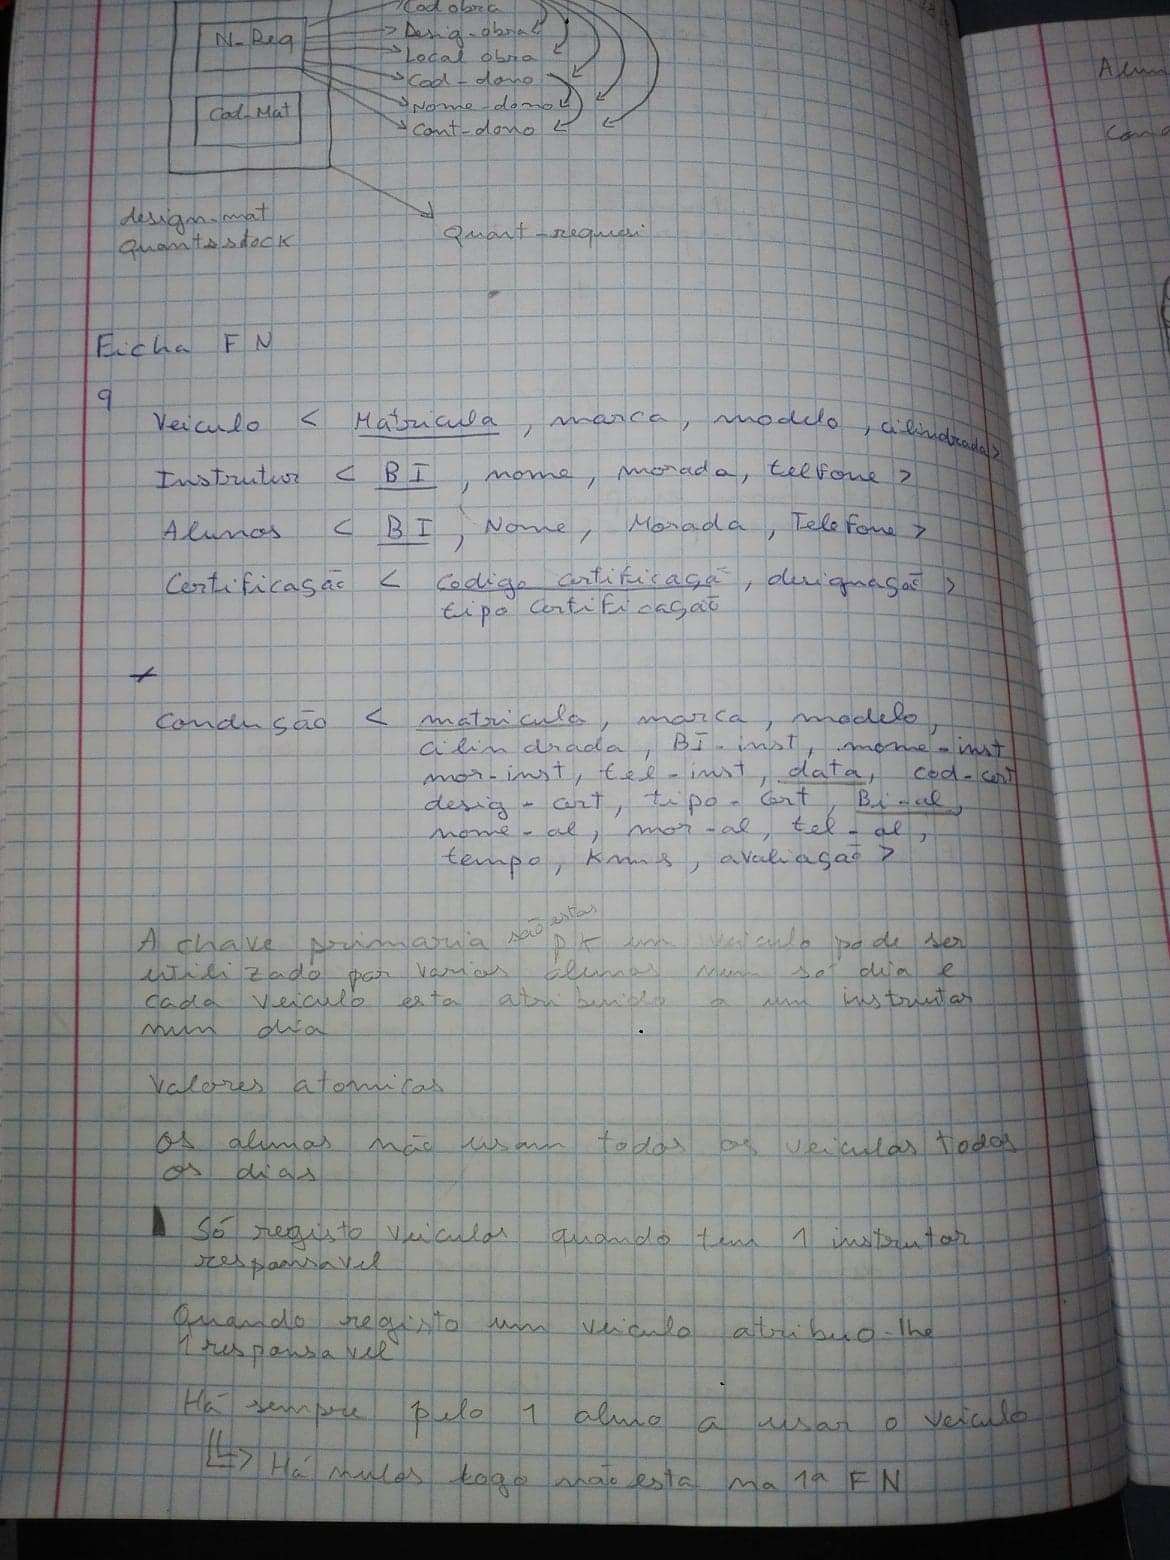 Cod obra
N-Req
Desig-obra
Local obra
Cod-dono
Nome-dono
Cod-Mat
Cont-dono
design-mat
Quantsstock
Quant-requesi
Ficha FN
9
Veiculo < Matricula, marca, modelo, cilindrada>
Instrutor < BI, nome, morada, telfone >
Alunos < BI, Nome, Morada, Telefone >
Certificação < codigo certificaçã, designação >
tipo certificação
+
Condução < matricula, marca, modelo,
cilindrada, BI-inst, nome-inst
mor-inst, tel-inst, data, cod-cert
desig-cert, tipo-cert, Bi-al,
nome-al, mor-al, tel-al,
tempo, Kms, avaliação >
são estas
A chave primaria PK um veiculo pode ser
utilizado por varios alunos num só dia e
cada veiculo esta atribuido a um instrutor
num dia
Valores atomicos
Os alunos não usam todos os veiculos todos
os dias
Só registo veiculos quando tem 1 instrutor
responsavel
Quando registo um veiculo atribuo-lhe
1 responsavel
Há sempre pelo 1 aluno a usar o veiculo
Há nulos logo não esta na 1ª FN
Alun
Cond